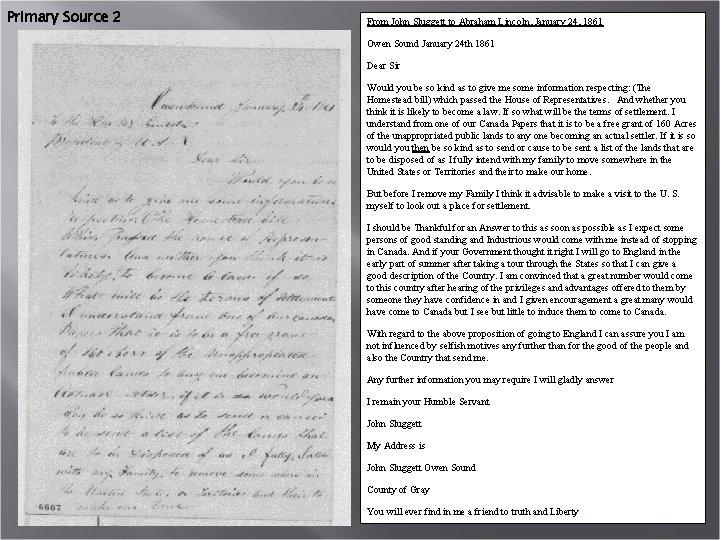 Primary Source 2
From John Sluggett to Abraham Lincoln, January 24, 1861
Owen Sound January 24th 1861
Dear Sir
Would you be so kind as to give me some information respecting: (The
Homestead bill) which passed the House of Representatives. And whether you
think it is likely to become a law. If so what will be the terms of settlement. I
understand from one of our Canada Papers that it is to be a free grant of 160 Acres
of the unappropriated public lands to any one becoming an actual settler. If it is so
would you then be so kind as to send or cause to be sent a list of the lands that are
to be disposed of as I fully intend with my family to move somewhere in the
United States or Territories and their to make our home.
But before I remove my Family I think it advisable to make a visit to the U. S.
myself to look out a place for settlement.
I should be Thankful for an Answer to this as soon as possible as I expect some
persons of good standing and Industrious would come with me instead of stopping
in Canada. And if your Government thought it right I will go to England in the
early part of summer after taking a tour through the States so that I can give a
good description of the Country. I am convinced that a great number would come
to this country after hearing of the privileges and advantages offered to them by
someone they have confidence in and I given encouragement a great many would
have come to Canada but I see but little to induce them to come to Canada.
With regard to the above proposition of going to England I can assure you I am
not influenced by selfish motives any further than for the good of the people and
also the Country that send me.
Any further information you may require I will gladly answer
I remain your Humble Servant
John Sluggett
My Address is
John Sluggett Owen Sound
County of Gray
You will ever find in me a friend to truth and Liberty
Owensound January 24th 1861
President of U.S.A
Dear Sir
Would you be so
kind as to give me some information
respecting (The Homestead bill
Which Passed the house of Represen
tatives. And wether you think it is
likely to become a law if so
What will be the terms of settlement
I understand from one of our canada
Papers that it is to be a free grant
of 160 Acers of the Unappropriated
Public lands to any one becoming an
actuale setler, if it is so would you
then be so kind as to send or cause
to be sent a list of the lands that
are to be disposed of as I fully intend
with my Family, to remove some where in
the United States, or Teritories and their to
make our home.
6667